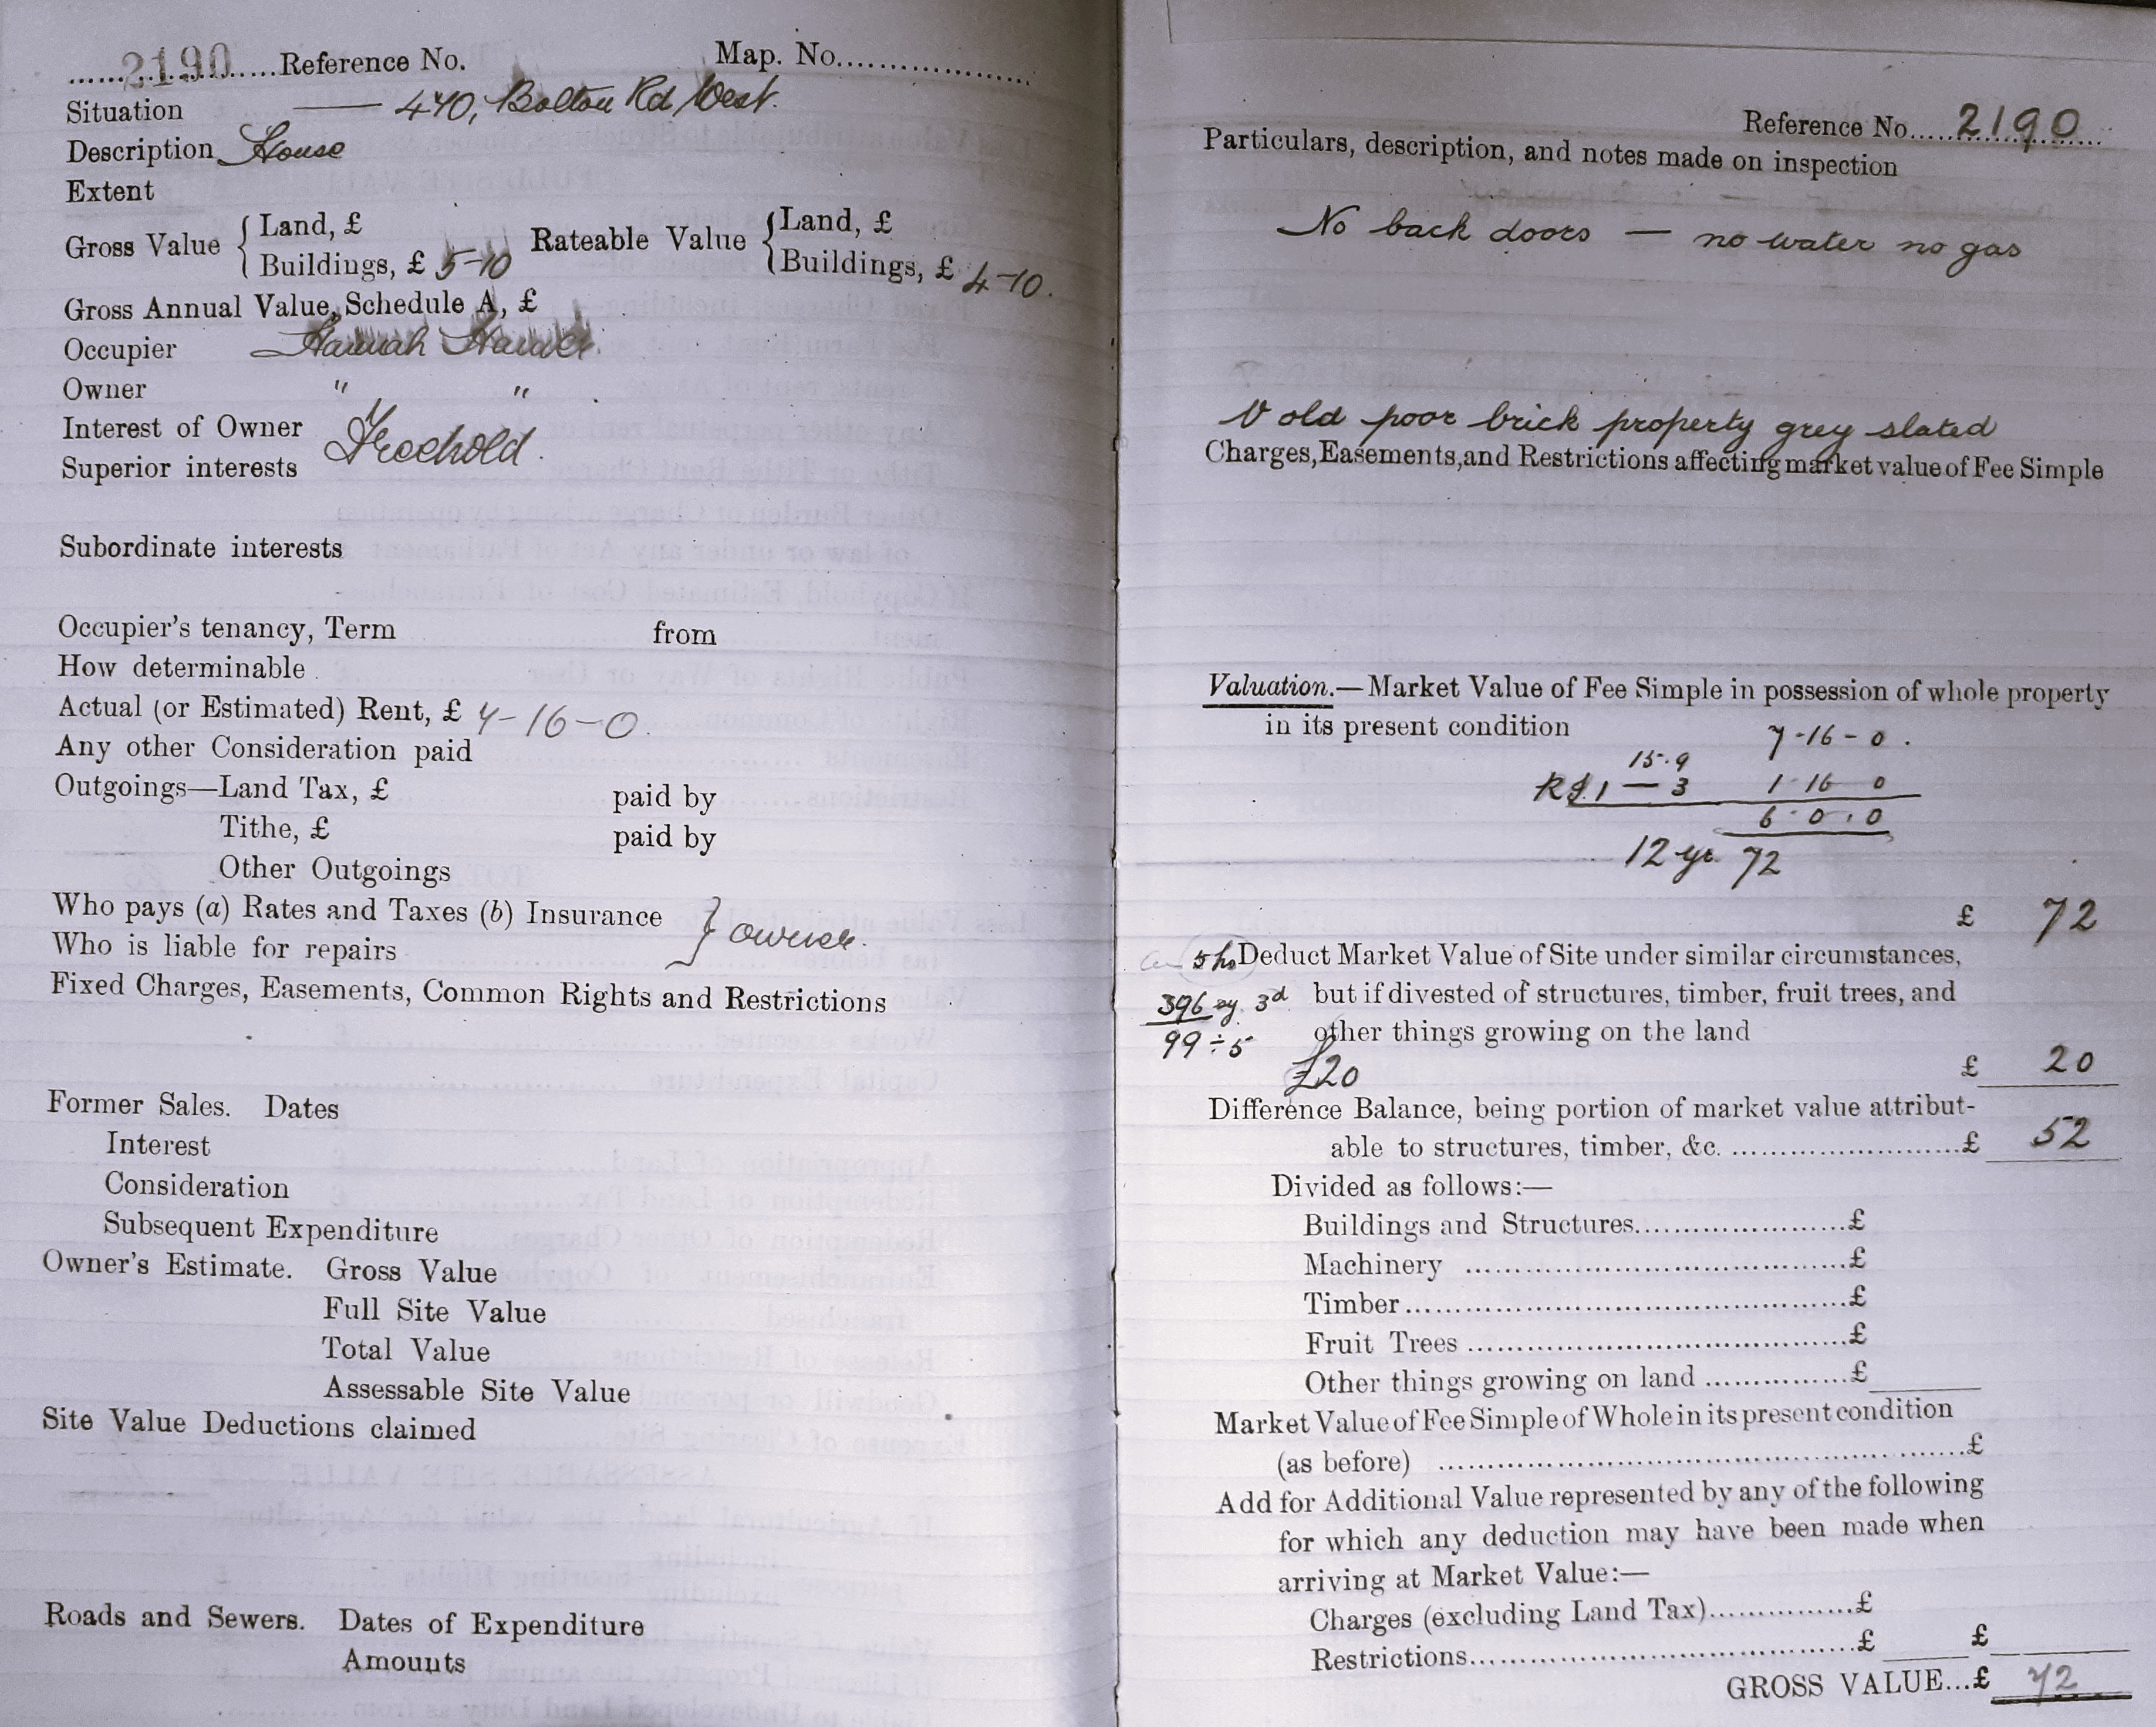 2190 Reference No. Map. No.
Situation — 470, Bolton Rd West.
Description House
Extent
Gross Value { Land, £
Buildings, £ 5-10
Rateable Value { Land, £
Buildings, £ 4-10.
Gross Annual Value, Schedule A, £
Occupier Hannah
Owner " "
Interest of Owner Freehold.
Superior interests
Subordinate interests
Occupier's tenancy, Term from
How determinable
Actual (or Estimated) Rent, £ 7-16-0.
Any other Consideration paid
Outgoings—Land Tax, £ paid by
Tithe, £ paid by
Other Outgoings
Who pays (a) Rates and Taxes (b) Insurance } owner.
Who is liable for repairs
Fixed Charges, Easements, Common Rights and Restrictions
Former Sales. Dates
Interest
Consideration
Subsequent Expenditure
Owner's Estimate. Gross Value
Full Site Value
Total Value
Assessable Site Value
Site Value Deductions claimed
Roads and Sewers. Dates of Expenditure
Amounts
Reference No. 2190
Particulars, description, and notes made on inspection
No back doors — no water no gas
V old poor brick property grey slated
Charges, Easements, and Restrictions affecting market value of Fee Simple
Valuation.—Market Value of Fee Simple in possession of whole property
in its present condition
7-16-0.
15.9
1 — 3 1 16 0
6.0.0
12 yr. 72
£ 72
5 ho Deduct Market Value of Site under similar circumstances,
396 3d but if divested of structures, timber, fruit trees, and
99÷5 other things growing on the land
£20 £ 20
Difference Balance, being portion of market value attribut-
able to structures, timber, &c. £ 52
Divided as follows:—
Buildings and Structures £
Machinery £
Timber £
Fruit Trees £
Other things growing on land £
Market Value of Fee Simple of Whole in its present condition
(as before) £
Add for Additional Value represented by any of the following
for which any deduction may have been made when
arriving at Market Value:—
Charges (excluding Land Tax) £
Restrictions £ £
GROSS VALUE...£ 72